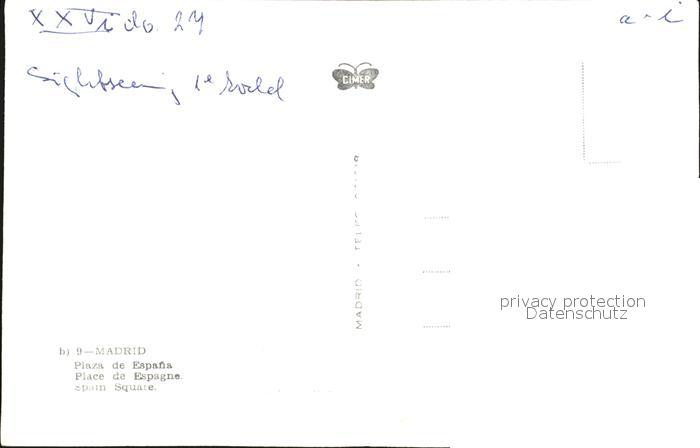 XXVI do. 27
a-i
Sightseeing, 1e
CIMER
MADRID - TELEF.
privacy protection
Datenschutz
b) 9—MADRID
Plaza de España
Place de Espagne.
Spain Square.